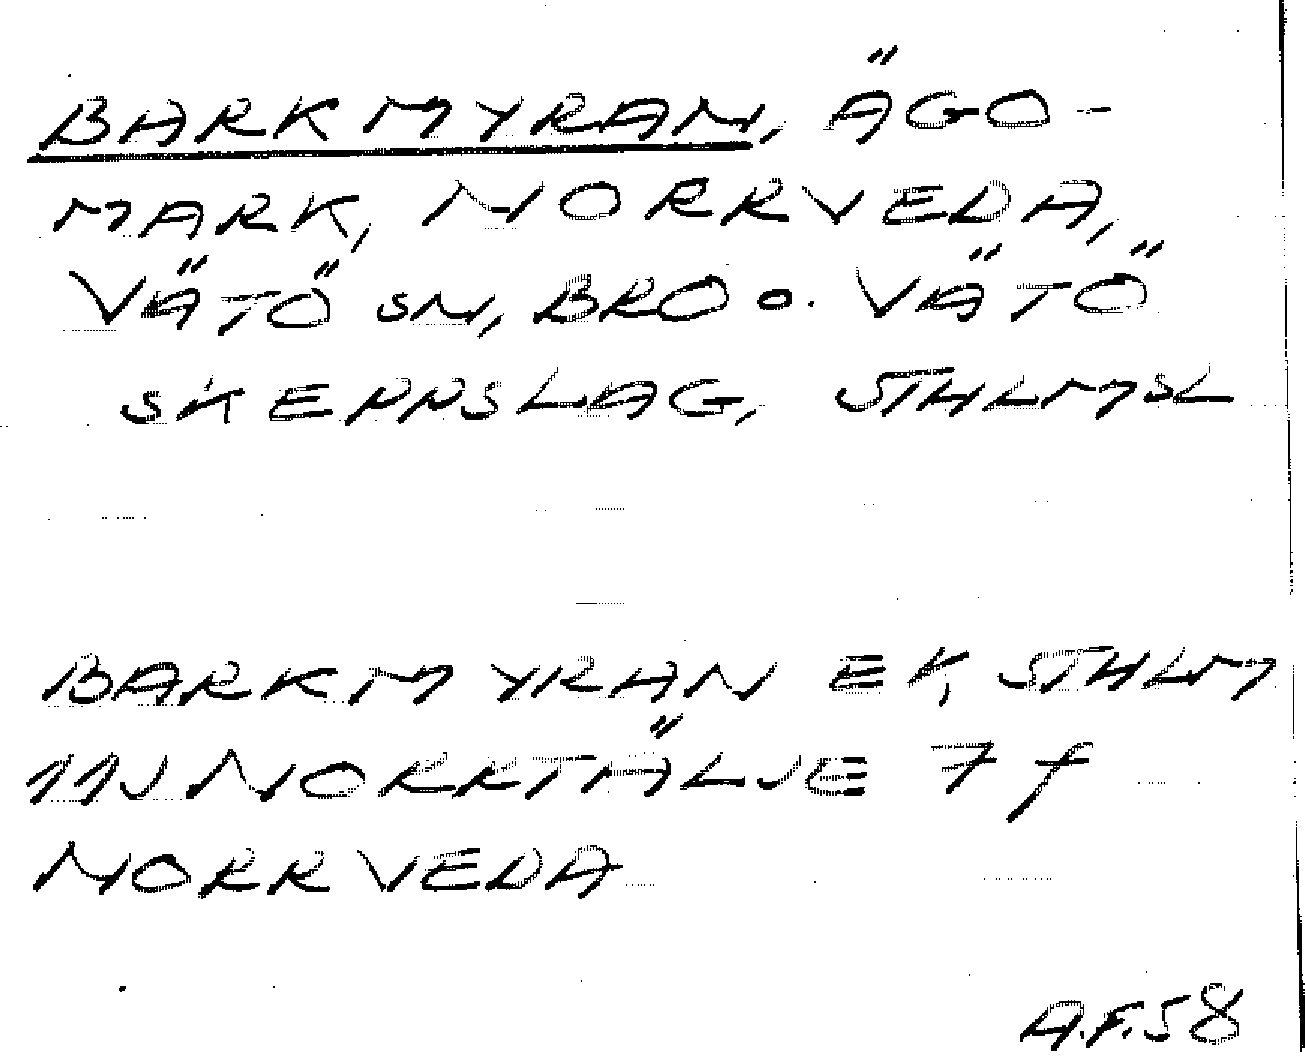 BARKMYRAN, ÄGO-
MARK, NORRVEDA,
VÄTÖ SN, BRO O. VÄTÖ
SKEPPSLAG, STHLMSL
BARKMYRAN EK, STHLM
11J NORRTÄLJE 7 f
NORRVEDA
A.F.58